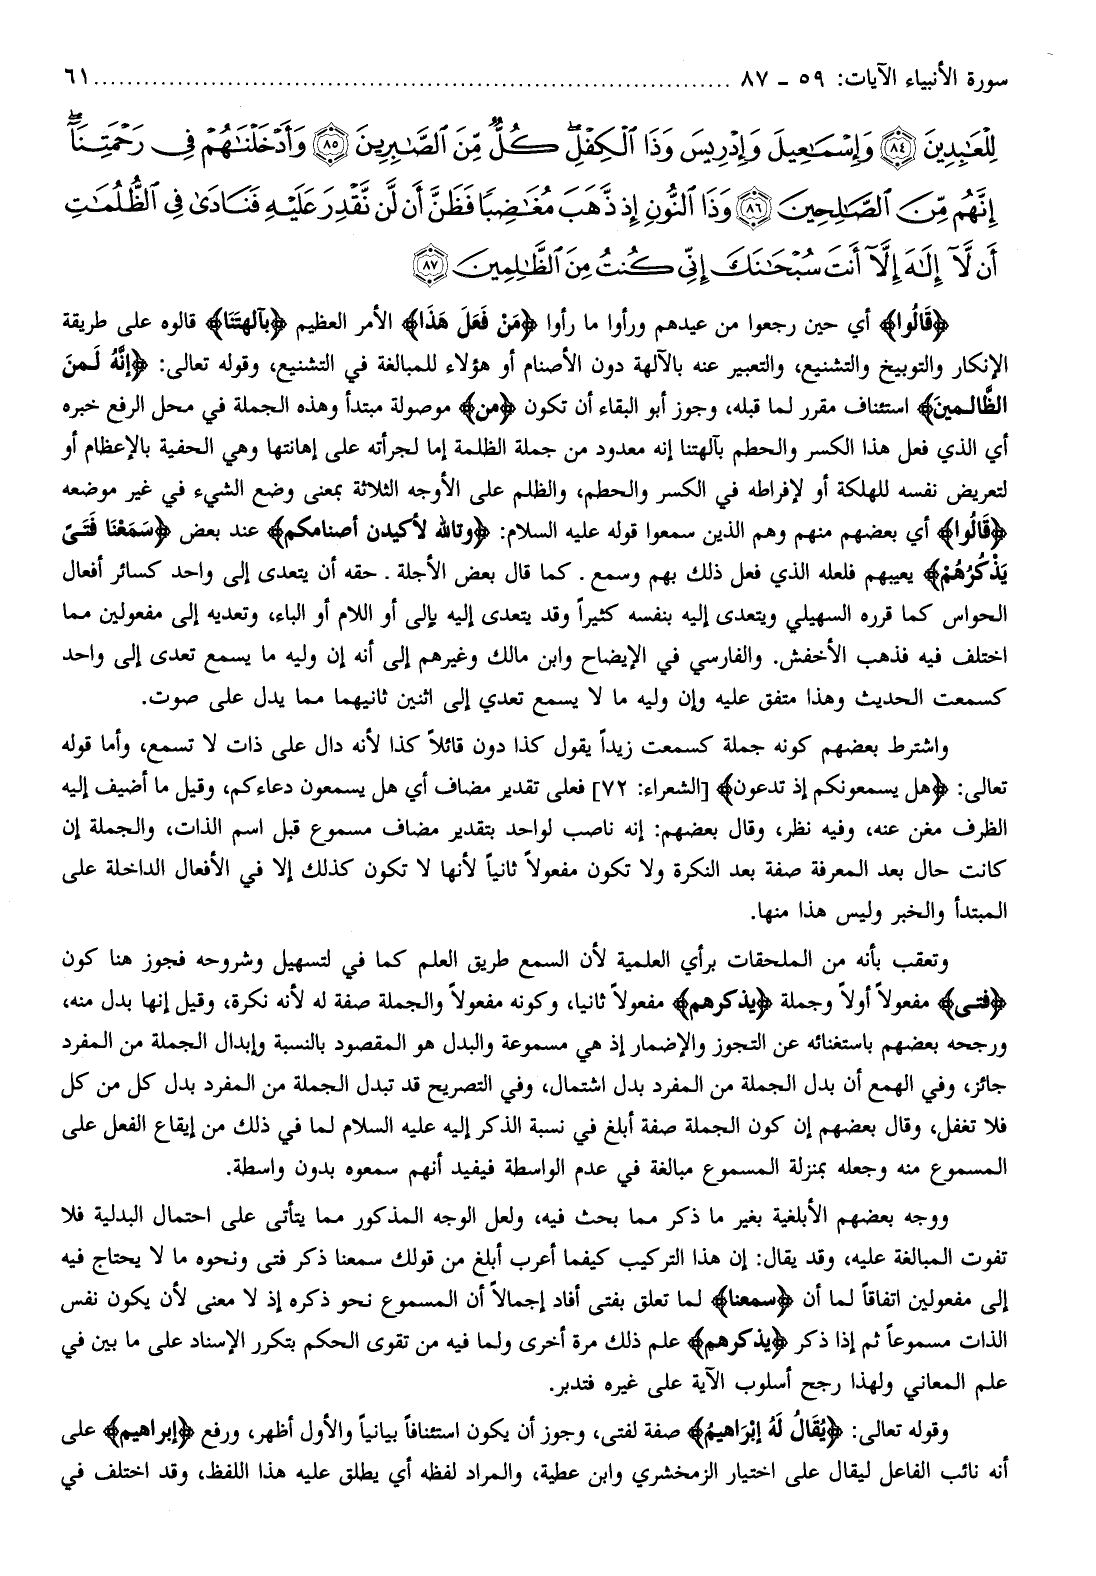 سورة الأنبياء الآيات: ٥٩ ـ ٨٧ ................................................................................ ٦١
لِلْعَابِدِينَ ﴿٨٤﴾ وَإِسْمَاعِيلَ وَإِدْرِيسَ وَذَا الْكِفْلِ ۖ كُلٌّ مِّنَ الصَّابِرِينَ ﴿٨٥﴾ وَأَدْخَلْنَاهُمْ فِي رَحْمَتِنَا ۖ
إِنَّهُم مِّنَ الصَّالِحِينَ ﴿٨٦﴾ وَذَا النُّونِ إِذ ذَّهَبَ مُغَاضِبًا فَظَنَّ أَن لَّن نَّقْدِرَ عَلَيْهِ فَنَادَىٰ فِي الظُّلُمَاتِ
أَن لَّا إِلَٰهَ إِلَّا أَنتَ سُبْحَانَكَ إِنِّي كُنتُ مِنَ الظَّالِمِينَ ﴿٨٧﴾
﴿قَالُوا﴾ أي حين رجعوا من عيدهم ورأوا ما رأوا ﴿مَنْ فَعَلَ هَذَا﴾ الأمر العظيم ﴿بِآلهتنَا﴾ قالوه على طريقة
الإنكار والتوبيخ والتشنيع، والتعبير عنه بالآلهة دون الأصنام أو هؤلاء للمبالغة في التشنيع، وقوله تعالى: ﴿إنَّهُ لَـمنَ
الظَّالـمينَ﴾ استئناف مقرر لما قبله، وجوز أبو البقاء أن تكون ﴿من﴾ موصولة مبتدأ وهذه الجملة في محل الرفع خبره
أي الذي فعل هذا الكسر والحطم بآلهتنا إنه معدود من جملة الظلمة إما لجرأته على إهانتها وهي الحفية بالإعظام أو
لتعريض نفسه للهلكة أو لإفراطه في الكسر والحطم، والظلم على الأوجه الثلاثة بمعنى وضع الشيء في غير موضعه
﴿قَالُوا﴾ أي بعضهم منهم وهم الذين سمعوا قوله عليه السلام: ﴿وتالله لأكيدن أصنامكم﴾ عند بعض ﴿سَمَعْنَا فَتَىً
يَذْكُرُهُمْ﴾ يعيبهم فلعله الذي فعل ذلك بهم وسمع ـ كما قال بعض الأجلة ـ حقه أن يتعدى إلى واحد كسائر أفعال
الحواس كما قرره السهيلي ويتعدى إليه بنفسه كثيراً وقد يتعدى إليه بإلى أو اللام أو الباء، وتعديه إلى مفعولين مما
اختلف فيه فذهب الأخفش. والفارسي في الإيضاح وابن مالك وغيرهم إلى أنه إن وليه ما يسمع تعدى إلى واحد
كسمعت الحديث وهذا متفق عليه وإن وليه ما لا يسمع تعدي إلى اثنين ثانيهما مما يدل على صوت.
واشترط بعضهم كونه جملة كسمعت زيداً يقول كذا دون قائلاً كذا لأنه دال على ذات لا تسمع، وأما قوله
تعالى: ﴿هل يسمعونكم إذ تدعون﴾ [الشعراء: ٧٢] فعلى تقدير مضاف أي هل يسمعون دعاءكم، وقيل ما أضيف إليه
الظرف مغن عنه، وفيه نظر، وقال بعضهم: إنه ناصب لواحد بتقدير مضاف مسموع قبل اسم الذات، والجملة إن
كانت حال بعد المعرفة صفة بعد النكرة ولا تكون مفعولاً ثانياً لأنها لا تكون كذلك إلا في الأفعال الداخلة على
المبتدأ والخبر وليس هذا منها.
وتعقب بأنه من الملحقات برأي العلمية لأن السمع طريق العلم كما في لتسهيل وشروحه فجوز هنا كون
﴿فتـى﴾ مفعولاً أولاً وجملة ﴿يذكرهم﴾ مفعولاً ثانيا، وكونه مفعولاً والجملة صفة له لأنه نكرة، وقيل إنها بدل منه،
ورجحه بعضهم باستغنائه عن التجوز والإضمار إذ هي مسموعة والبدل هو المقصود بالنسبة وإبدال الجملة من المفرد
جائز، وفي الهمع أن بدل الجملة من المفرد بدل اشتمال، وفي التصريح قد تبدل الجملة من المفرد بدل كل من كل
فلا تغفل، وقال بعضهم إن كون الجملة صفة أبلغ في نسبة الذكر إليه عليه السلام لما في ذلك من إيقاع الفعل على
المسموع منه وجعله بمنزلة المسموع مبالغة في عدم الواسطة فيفيد أنهم سمعوه بدون واسطة.
ووجه بعضهم الأبلغية بغير ما ذكر مما بحث فيه، ولعل الوجه المذكور مما يتأتى على احتمال البدلية فلا
تفوت المبالغة عليه، وقد يقال: إن هذا التركيب كيفما أعرب أبلغ من قولك سمعنا ذكر فتى ونحوه ما لا يحتاج فيه
إلى مفعولين اتفاقاً لما أن ﴿سمعنا﴾ لما تعلق بفتى أفاد إجمالاً أن المسموع نحو ذكره إذ لا معنى لأن يكون نفس
الذات مسموعاً ثم إذا ذكر ﴿يذكرهم﴾ علم ذلك مرة أخرى ولما فيه من تقوى الحكم بتكرر الإسناد على ما بين في
علم المعاني ولهذا رجح أسلوب الآية على غيره فتدبر.
وقوله تعالى: ﴿يُقَالُ لَهُ إبْرَاهيمُ﴾ صفة لفتى، وجوز أن يكون استئنافاً بيانياً والأول أظهر، ورفع ﴿إبراهيم﴾ على
أنه نائب الفاعل ليقال على اختيار الزمخشري وابن عطية، والمراد لفظه أي يطلق عليه هذا اللفظ، وقد اختلف في